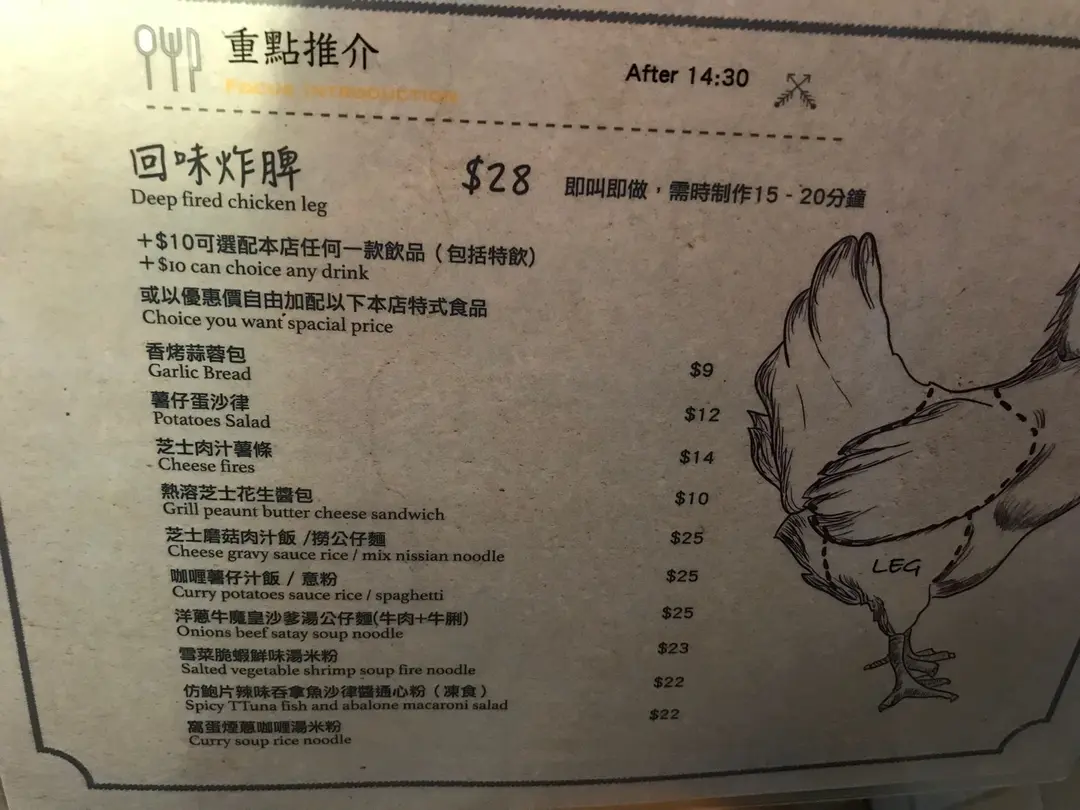 重點推介
FOCUS INTRODUCTION
After 14:30
回味炸脾
$28
即叫即做，需時制作15 - 20分鐘
Deep fired chicken leg
+$10可選配本店任何一款飲品（包括特飲）
+$10 can choice any drink
或以優惠價自由加配以下本店特式食品
Choice you want spacial price
香烤蒜蓉包
Garlic Bread
$9
薯仔蛋沙律
Potatoes Salad
$12
芝士肉汁薯條
Cheese fires
$14
熱溶芝士花生醬包
Grill peaunt butter cheese sandwich
$10
芝士磨菇肉汁飯 /撈公仔麵
Cheese gravy sauce rice / mix nissian noodle
$25
咖喱薯仔汁飯 / 意粉
Curry potatoes sauce rice / spaghetti
$25
洋蔥牛魔皇沙爹湯公仔麵(牛肉+牛脷)
Onions beef satay soup noodle
$25
雪菜脆蝦鮮味湯米粉
Salted vegetable shrimp soup fire noodle
$23
仿鮑片辣味吞拿魚沙律醬通心粉（凍食）
Spicy TTuna fish and abalone macaroni salad
$22
窩蛋煙蔥咖喱湯米粉
Curry soup rice noodle
$22
LEG